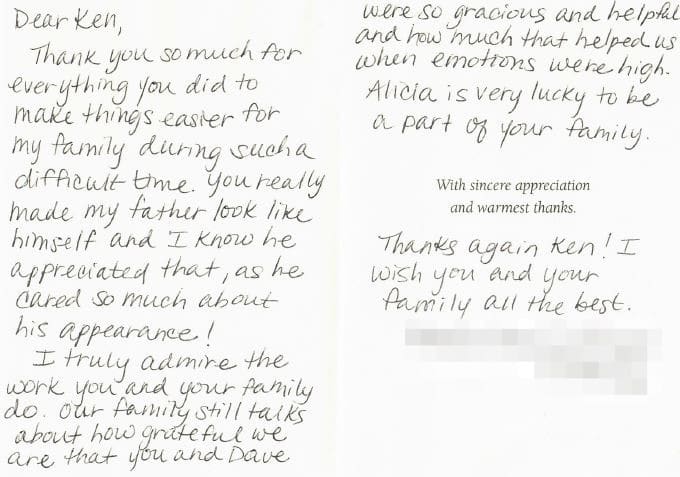 Dear Ken,
Thank you so much for
everything you did to
make things easier for
my family during such a
difficult time. You really
made my father look like
himself and I know he
appreciated that, as he
cared so much about
his appearance!
I truly admire the
work you and your family
do. Our family still talks
about how grateful we
are that you and Dave
were so gracious and helpful
and how much that helped us
when emotions were high.
Alicia is very lucky to be
a part of your family.
With sincere appreciation
and warmest thanks.
Thanks again Ken! I
wish you and your
family all the best.